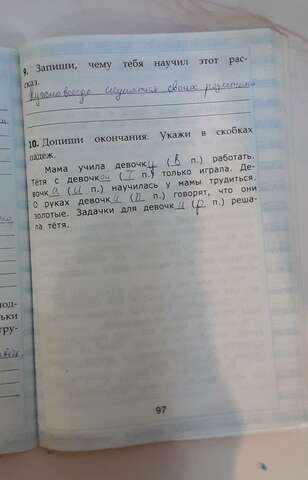 9. Запиши, чему тебя научил этот рас-
сказ.
Нужно всегда слушаться своих родителей
10. Допиши окончания. Укажи в скобках
падеж.
Мама учила девочку (В п.) работать.
Тётя с девочкой (Т п.) только играла. Де-
вочка (И п.) научилась у мамы трудиться.
О руках девочки (П п.) говорят, что они
золотые. Задачки для девочки (Р п.) реша-
ла тётя.
97